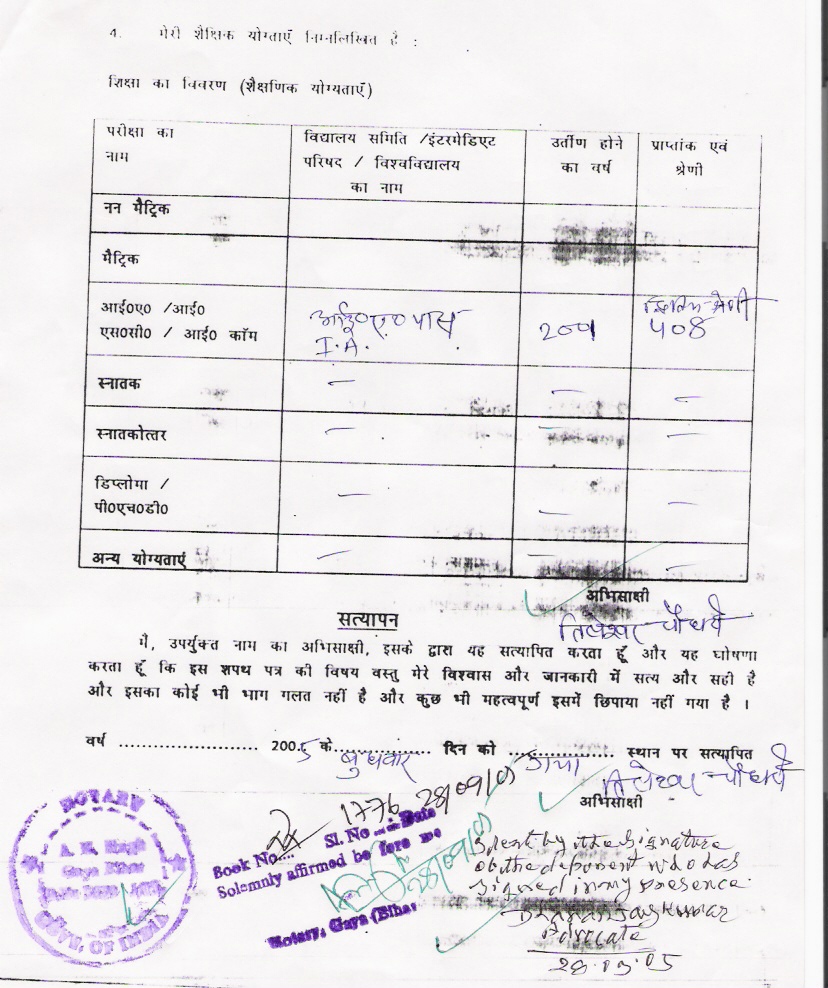 4. मेरी शैक्षिक योग्ताएँ निम्नलिखित है :
शिक्षा का विवरण (शैक्षणिक योग्यताएँ)
परीक्षा का नाम
विद्यालय समिति /इंटरमेडिएट परिषद / विश्वविद्यालय का नाम
उर्तीण होने का वर्ष
प्राप्तांक एवं श्रेणी
नन मैट्रिक
मैट्रिक
आई०ए० /आई०
एस०सी० / आई० कॉम
आई०ए० पास
I.A.
श्रेणी
408
स्नातक – – –
स्नातकोत्तर – – –
डिप्लोमा /
पी०एच०डी० – – –
अन्य योग्यताएं – – –
अभिसाक्षी
सत्यापन
मै, उपर्युक्त नाम का अभिसाक्षी, इसके द्वारा यह सत्यापित करता हूँ और यह घोषणा
करता हूँ कि इस शपथ पत्र की विषय वस्तु मेरे विश्वास और जानकारी में सत्य और सही है
और इसका कोई भी भाग गलत नहीं है और कुछ भी महत्वपूर्ण इसमें छिपाया नहीं गया है ।
वर्ष ........................ 2005 के बुधवार दिन को गया स्थान पर सत्यापित
चौधरी
अभिसाक्षी
NOTARY
Gaya Bihar
GOVT. OF INDIA
Book No. Sl. No 1776 Date 28/09/05
Solemnly affirmed before me
Notary, Gaya (Bihar
by the signature
of the deponent who has
signed in my presence.
Kumar
Advocate